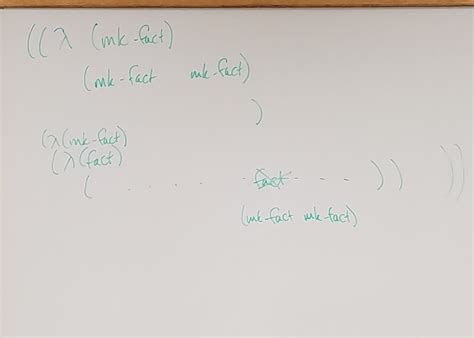 ((λ (mk-fact)
(mk-fact mk-fact)
)
(λ(mk-fact)
(λ(fact)
( . . . . . . fact . . . )) ))
(mk-fact mk-fact)